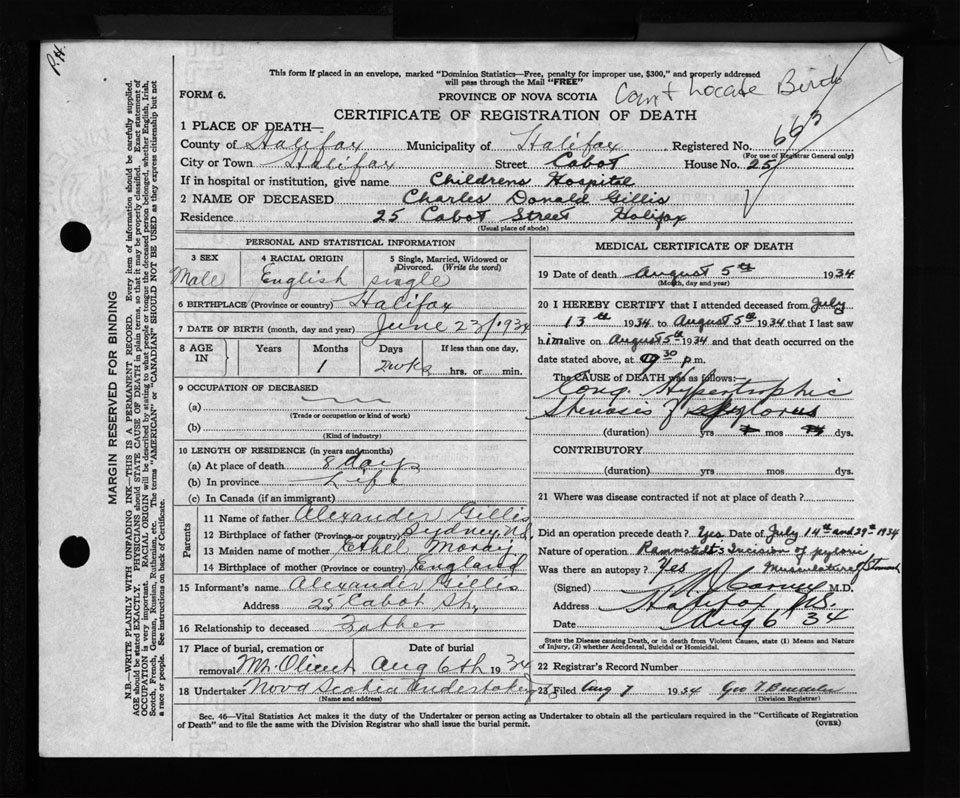 P.H.
This form if placed in an envelope, marked "Dominion Statistics—Free, penalty for improper use, $300," and properly addressed
will pass through the Mail "FREE"
FORM 6.
PROVINCE OF NOVA SCOTIA
Can't Locate Birth
CERTIFICATE OF REGISTRATION OF DEATH
1 PLACE OF DEATH—
County of Halifax Municipality of Halifax Registered No. 663
(For use of Registrar General only)
City or Town Halifax Street Cabot House No. 25
If in hospital or institution, give name Childrens Hospital
2 NAME OF DECEASED Charles Donald Gillis
Residence 25 Cabot Street Halifax
(Usual place of abode)
PERSONAL AND STATISTICAL INFORMATION
3 SEX Male
4 RACIAL ORIGIN English
5 Single, Married, Widowed or Divorced. (Write the word) single
6 BIRTHPLACE (Province or country) Halifax
7 DATE OF BIRTH (month, day and year) June 23/1934
8 AGE IN Years Months Days If less than one day,
1 2wks hrs. or min.
9 OCCUPATION OF DECEASED
(a)
(Trade or occupation or kind of work)
(b)
(Kind of industry)
10 LENGTH OF RESIDENCE (in years and months)
(a) At place of death 8 days
(b) In province Life
(c) In Canada (if an immigrant)
Parents
11 Name of father Alexander Gillis
12 Birthplace of father (Province or country) Sydney N.S.
13 Maiden name of mother Ethel
14 Birthplace of mother (Province or country) England
15 Informant's name Alexander Gillis
Address 25 Cabot St.
16 Relationship to deceased Father
17 Place of burial, cremation or removal Mt. Olivet Date of burial Aug 6th 1934
18 Undertaker Nova Scotia Undertaking
(Name and address)
MEDICAL CERTIFICATE OF DEATH
19 Date of death August 5th 1934
(Month, day and year)
20 I HEREBY CERTIFY that I attended deceased from July
13th 1934 to August 5th 1934 that I last saw
him alive on August 5th 1934 and that death occurred on the
date stated above, at 9 30 p.m.
The CAUSE OF DEATH was as follows:—
Cong. Hypertrophic
Stenosis of pylorus
(duration) yrs mos dys.
CONTRIBUTORY
(duration) yrs. mos. dys.
21 Where was disease contracted if not at place of death?
Did an operation precede death? Yes Date of July 14th and 29th 1934
Nature of operation Rammstedt's Incision of pyloric
Musculature of Stomach
Was there an autopsy? Yes
(Signed) M.D.
Address Halifax NS
Date Aug 6 34
State the Disease causing Death, or in death from Violent Causes, state (1) Means and Nature
of Injury, (2) whether Accidental, Suicidal or Homicidal.
22 Registrar's Record Number
23 Filed Aug 7 1934 Geo
(Division Registrar)
Sec. 46—Vital Statistics Act makes it the duty of the Undertaker or person acting as Undertaker to obtain all the particulars required in the "Certificate of Registration
of Death" and to file the same with the Division Registrar who shall issue the burial permit.
(OVER)
MARGIN RESERVED FOR BINDING
N.B.—WRITE PLAINLY WITH UNFADING INK—THIS IS A PERMANENT RECORD. Every item of information should be carefully supplied.
AGE should be stated EXACTLY. PHYSICIANS should STATE CAUSE OF DEATH in plain terms, so that it may be properly classified. Exact statement of
OCCUPATION is very important. RACIAL ORIGIN will be described by stating to what people or tongue the deceased person belonged, whether English, Irish,
Scotch, French, German, Russian, Ruthenian, etc. The terms "AMERICAN" or "CANADIAN" SHOULD NOT BE USED as they express citizenship but not
a race or people. See instructions on back of Certificate.